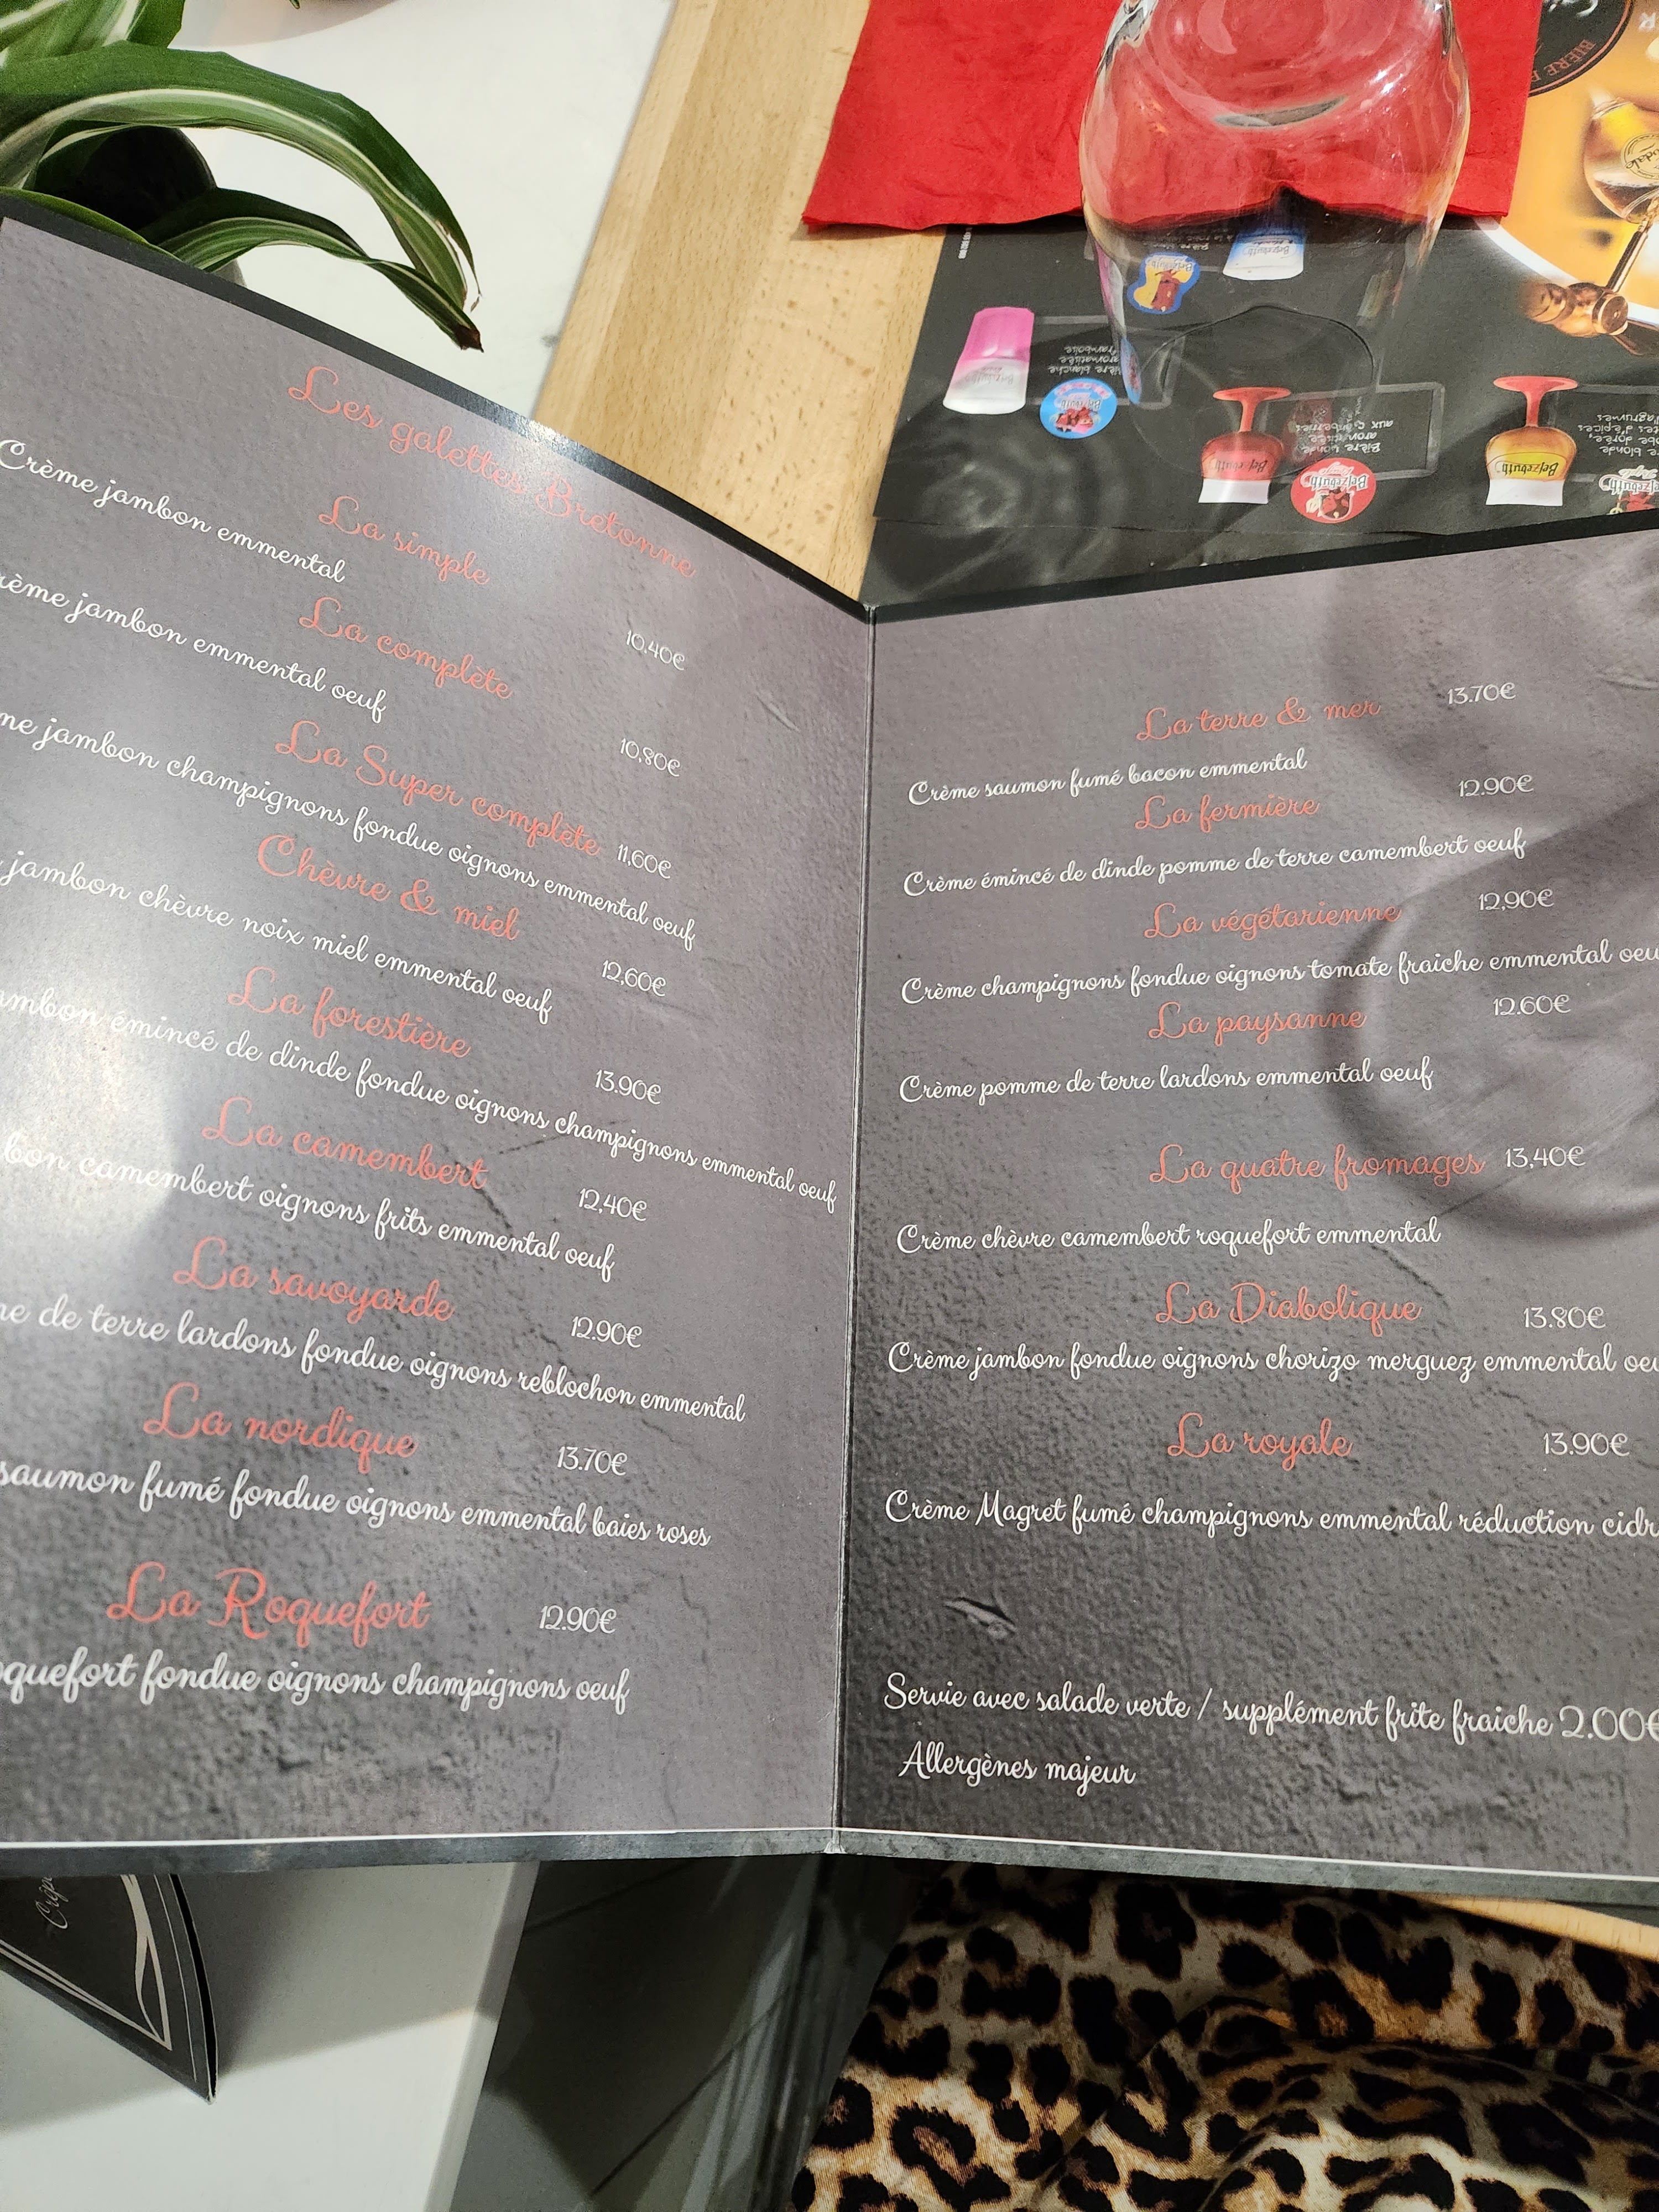 Les galettes Bretonne
La simple
10,40€
Crème jambon emmental
La complète
10,80€
jambon emmental oeuf
La Super complète 11,60€
jambon champignons fondue oignons emmental oeuf
Chèvre & miel
12,60€
jambon chèvre noix miel emmental oeuf
La forestière
13.90€
émincé de dinde fondue oignons champignons emmental oeuf
La camembert
12,40€
camembert oignons frits emmental oeuf
La savoyarde
12.90€
de terre lardons fondue oignons reblochon emmental
La nordique
13.70€
saumon fumé fondue oignons emmental baies roses
La Roquefort
12.90€
fondue oignons champignons oeuf
La terre & mer 13.70€
Crème saumon fumé bacon emmental
La fermière 12.90€
Crème émincé de dinde pomme de terre camembert oeuf
La végétarienne 12,90€
Crème champignons fondue oignons tomate fraiche emmental
La paysanne 12.60€
Crème pomme de terre lardons emmental oeuf
La quatre fromages 13,40€
Crème chèvre camembert roquefort emmental
La Diabolique 13.80€
Crème jambon fondue oignons chorizo merguez emmental
La royale 13.90€
Crème Magret fumé champignons emmental réduction
Servie avec salade verte / supplément frite fraiche 2.00€
Allergènes majeur
Belzebuth
Belzebuth
Belzebuth